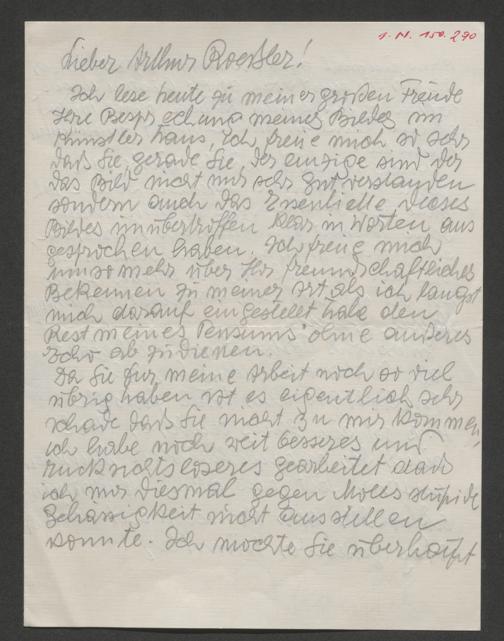 1. N. 150.290
Lieber Arthur Roessler!
Ich lese heute zu meiner großen Freude
Ihre Besprechung meines Bildes im
Künstlerhaus. Ich freue mich so sehr
daß Sie, gerade Sie, der einzige sind der
das Bild nicht nur sehr gut verstanden
sondern auch das Essentielle dieses
Bildes unübertroffen klar in Worten aus
gesprochen haben. Ich freue mich
umsomehr über Ihr freundschaftliches
Bekennen zu meiner Art als ich längst
mich darauf eingestellt habe den
Rest meines Pensums ohne äußeres
Echo ab zu dienen.
Da Sie für meine Arbeit noch so viel
übrig haben ist es eigentlich sehr
schade daß Sie nicht zu mir kommen,
ich habe noch weit besseres und
rücksichtsloseres gearbeitet das
ich mir diesmal gegen Molls stupide
Gehässigkeit nicht ausstellen
konnte. Ich möchte Sie überhaupt